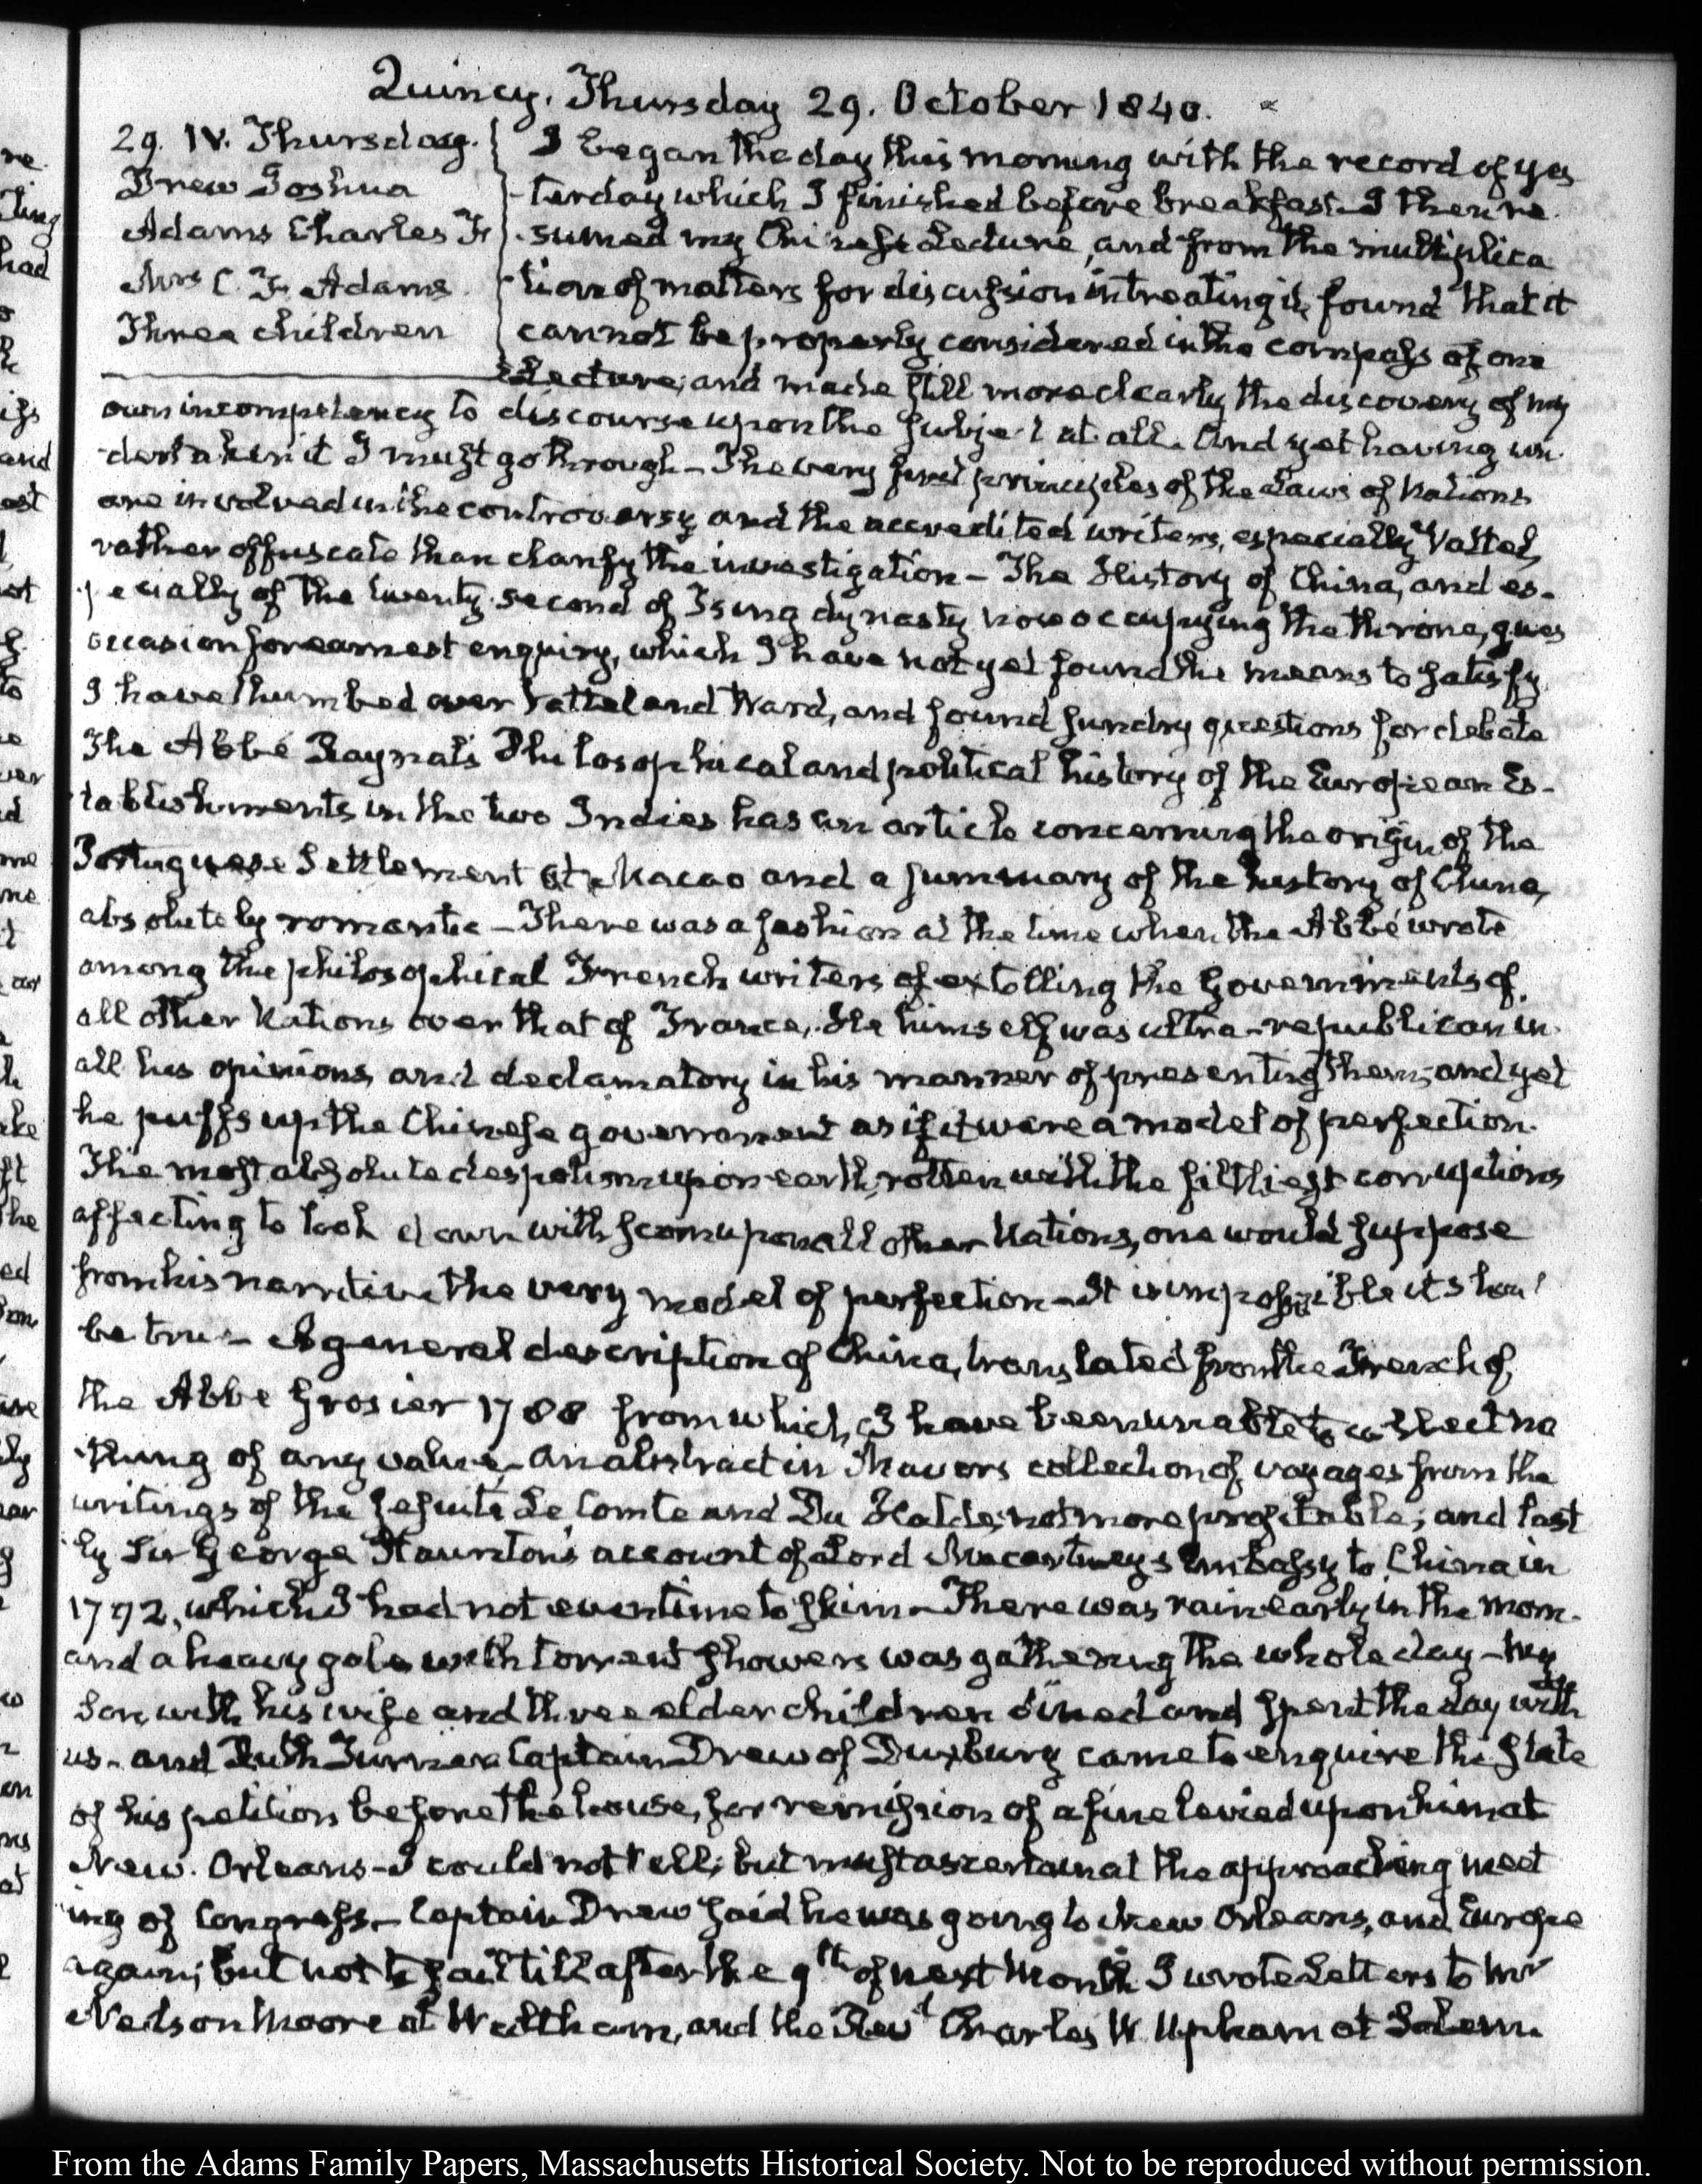 Quincy. Thursday 29. October 1840.
29. IV. Thursday.
Drew Joshua
Adams Charles F.
Mrs C. F. Adams
Three children
I began the day this morning with the record of yes
terday which I finished before breakfast. I then re
sumed my Chinese Lecture, and from the multiplica
tion of matters for discussion in treating it, found that it
cannot be properly considered in the compass of one
Lecture; and made still more clearly the discovery of my
own incompetency to discourse upon the subject at all. And yet having un-
dertaken it I must go through – The very first principles of the Laws of Nations
are involved in the controversy and the accredited writers, especially Vattel,
rather offuscate than clarify the investigation – The History of China, and es-
pecially of the twenty-second of Tsing dynasty now occupying the throne, gives
occasion for earnest enquiry, which I have not yet found the means to satisfy
I have thumbed over Vattel and Ward, and found sundry questions for debate
The Abbé Raynal's Philosophical and political history of the European Es-
tablishments in the two Indies has an article concerning the origin of the
Portuguese Settlement at Macao and a summary of the history of China,
absolutely romantic – There was a fashion at the time when the Abbé wrote
among the philosophical French writers of extolling the Governments of
all other Nations over that of France. He himself was ultra-republican in
all his opinions, and declamatory in his manner of presenting them; and yet
he puffs up the Chinese government as if it were a model of perfection.
The most absolute despotism upon earth, rotten with the filthiest corruptions
affecting to look down with scorn upon all other Nations, one would suppose
from his narrative the very model of perfection – It is impossible it shou'
be true – A general description of China, translated from the French of
the Abbe Grosier 1788 from which I have been unable to collect no
thing of any value – an abstract in Mavors collection of voyages from the
writings of the Jesuits Le Comte and Du Halde, not more profitable; and last
ly Sir George Staunton's account of Lord Macartney's Embassy to China in
1792, which I had not even time to skim – There was rain early in the morn-
and a heavy gale with torrent showers was gathering the whole day – My
Son, with his wife and three elder children dined and spent the day with
us – and Ruth Turner. Captain Drew of Duxbury came to enquire the State
of his petition before the house, for remission of a fine levied upon him at
New Orleans – I could not tell; but must ascertain at the approaching meet
ing of Congress – Captain Drew said he was going to New Orleans, and Europe
again; but not to sail till after the 9th of next Month. I wrote Letters to Mr
Nelson Moore at Waltham, and the Revd Charles W. Upham at Salem.
re
had
and
ost
not
to
ver
me
ne
the
ed
ly
on
From the Adams Family Papers, Massachusetts Historical Society. Not to be reproduced without permission.